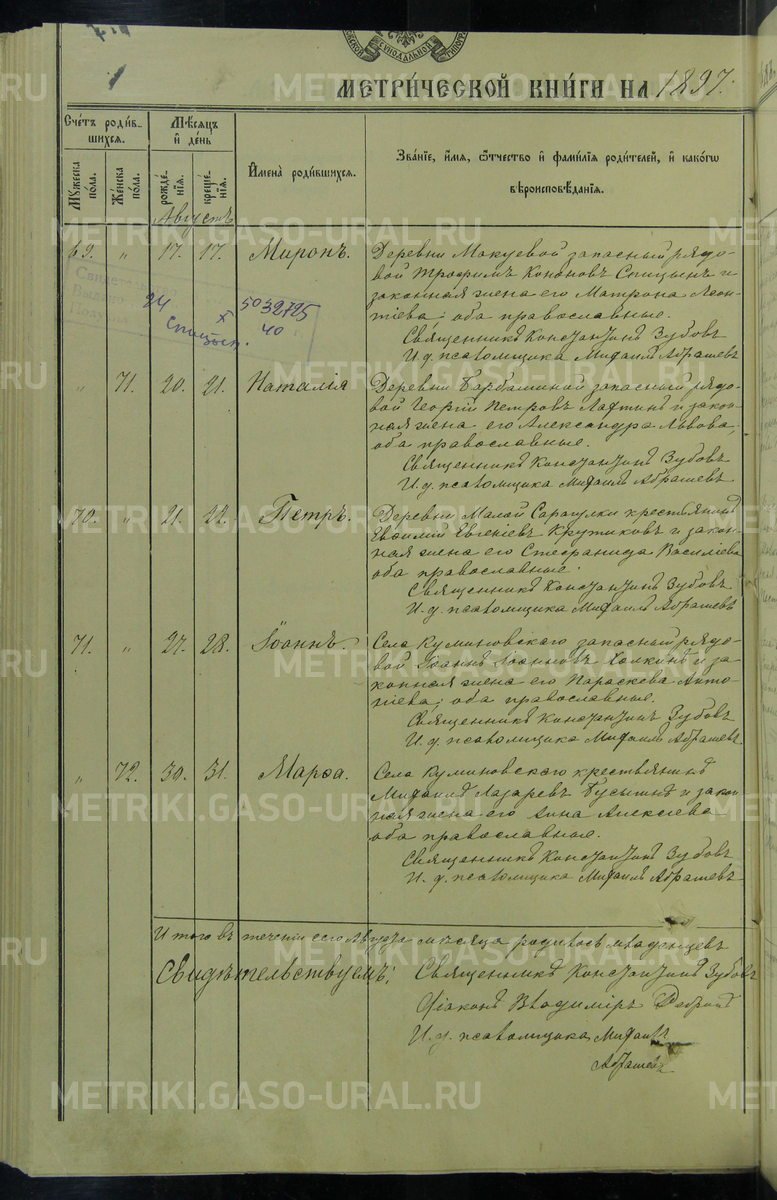 МЕТРИ́ЧЕСКОЙ КНИ́ГИ НА 1897.
Сче́тъ роди́в-
шихся.
Мꙋжеска
по́ла.
Же́нска
по́ла.
Мѣ́сяцъ
и́ де́нь
рожде́-
нїя.
креще́-
нїя.
И́мена̀ роди́вшихся.
Зва́нїе, и́мя, ѻ҆́тчество и́ фами́лїѧ роди́телей, и́ како́гѡ
вѣроисповѣ́данїѧ.
Августъ
69. " 17. 17. Миронъ.
Деревни Макуевой запасный рядо-
вой Трофимъ Кононовъ Спицынъ и
законная жена его Матрона Леон-
тіева, оба православные.
Священникъ Константинъ Зубовъ
И. д. псаломщика Михаилъ Абрашевъ
24 X 5032725
Спицын. 40
" 71. 20. 21. Наталія
Деревни Барбашиной запасный рядо-
вой Георгій Петровъ Лаптинъ и закон-
ная жена его Александра Львова,
оба православные.
Священникъ Константинъ Зубовъ
И. д. псаломщика Михаилъ Абрашевъ
70. " 21. 22. Петръ.
Деревни Малой Сарапулки крестьянинъ
Евѳимій Евгеніевъ Крутиковъ и закон-
ная жена его Стефанида Василіева
оба православные.
Священникъ Константинъ Зубовъ
И. д. псаломщика Михаилъ Абрашевъ
71. " 27. 28. Іоаннъ.
Села Куминовскаго запасный рядо-
вой Іоаннъ Іоанновъ Холкинъ и за-
конная жена его Параскева Анто-
ніева, оба православные.
Священникъ Константинъ Зубовъ
И. д. псаломщика Михаилъ Абрашевъ
" 72. 30. 31. Марѳа.
Села Куминовскаго крестьянинъ
Михаилъ Лазаревъ Бусыгинъ и закон-
ная жена его Анна Алексіева
оба православные.
Священникъ Константинъ Зубовъ
И. д. псаломщика Михаилъ Абрашевъ
Итого въ теченіи сего Августа мѣсяца родилось младенцевъ
Свидѣтельствуемъ: Священникъ Константинъ Зубовъ
Діаконъ Владиміръ
И. д. псаломщика Михаилъ
Абрашевъ
METRIKI.GASO-URAL.RU